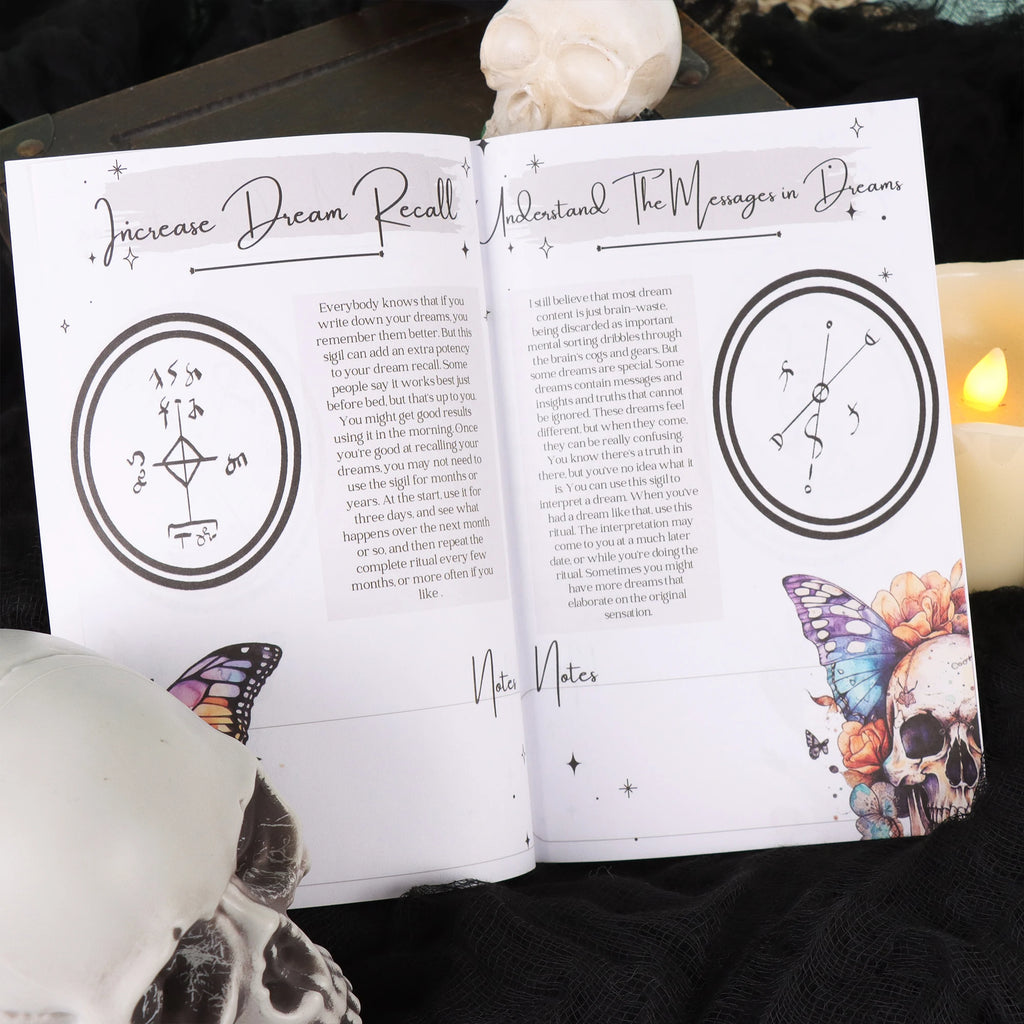 Increase Dream Recall
Everybody knows that if you
write down your dreams, you
remember them better. But this
sigil can add an extra potency
to your dream recall. Some
people say it works best just
before bed, but that's up to you.
You might get good results
using it in the morning. Once
you're good at recalling your
dreams, you may not need to
use the sigil for months or
years. At the start, use it for
three days, and see what
happens over the next month
or so, and then repeat the
complete ritual every few
months, or more often if you
like .
Notes
Understand The Messages in Dreams
I still believe that most dream
content is just brain-waste,
being discarded as important
mental sorting dribbles through
the brain's cogs and gears. But
some dreams are special. Some
dreams contain messages and
insights and truths that cannot
be ignored. These dreams feel
different, but when they come,
they can be really confusing.
You know there's a truth in
there, but you've no idea what it
is. You can use this sigil to
interpret a dream. When you've
had a dream like that, use this
ritual. The interpretation may
come to you at a much later
date, or while you're doing the
ritual. Sometimes you might
have more dreams that
elaborate on the original
sensation.
Notes